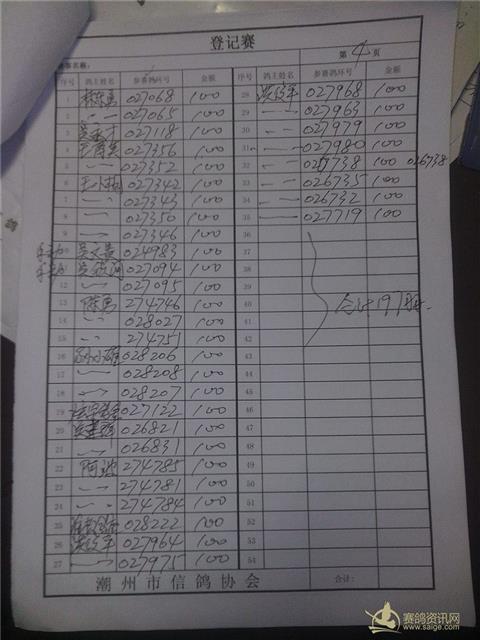 登记赛
赛事名称： 第 4 页
序号 鸽主姓名 参赛鸽环号 金额 序号 鸽主姓名 参赛鸽环号 金额
1 027068 100 28 027968 100
2 〃 027065 100 29 〃 027963 100
3 027118 100 30 〃 027979 100
4 027356 100 31 〃 027980 100
5 〃 027352 100 32 〃 100 026738
6 王小 027342 100 33 〃 026735 100
7 〃 027343 100 34 〃 026732 100
8 〃 027350 100 35 〃 027719 100
9 〃 027346 100 36
10 024983 100 37
11 027094 100 38
12 〃 027095 100 39
13 陈勇 274746 100 40 合计197
14 〃 028027 100 41
15 〃 274751 100 42
16 028206 100 43
17 〃 028208 100 44
18 〃 028207 100 45
19 027122 100 46
20 026821 100 47
21 〃 026831 100 48
22 274785 100 49
23 〃 274781 100 50
24 〃 274784 100 51
25 028222 100 52
26 027964 100 53
27 〃 027975 100 54
潮州市信鸽协会 合计：
赛鸽资讯网
www.saige.com